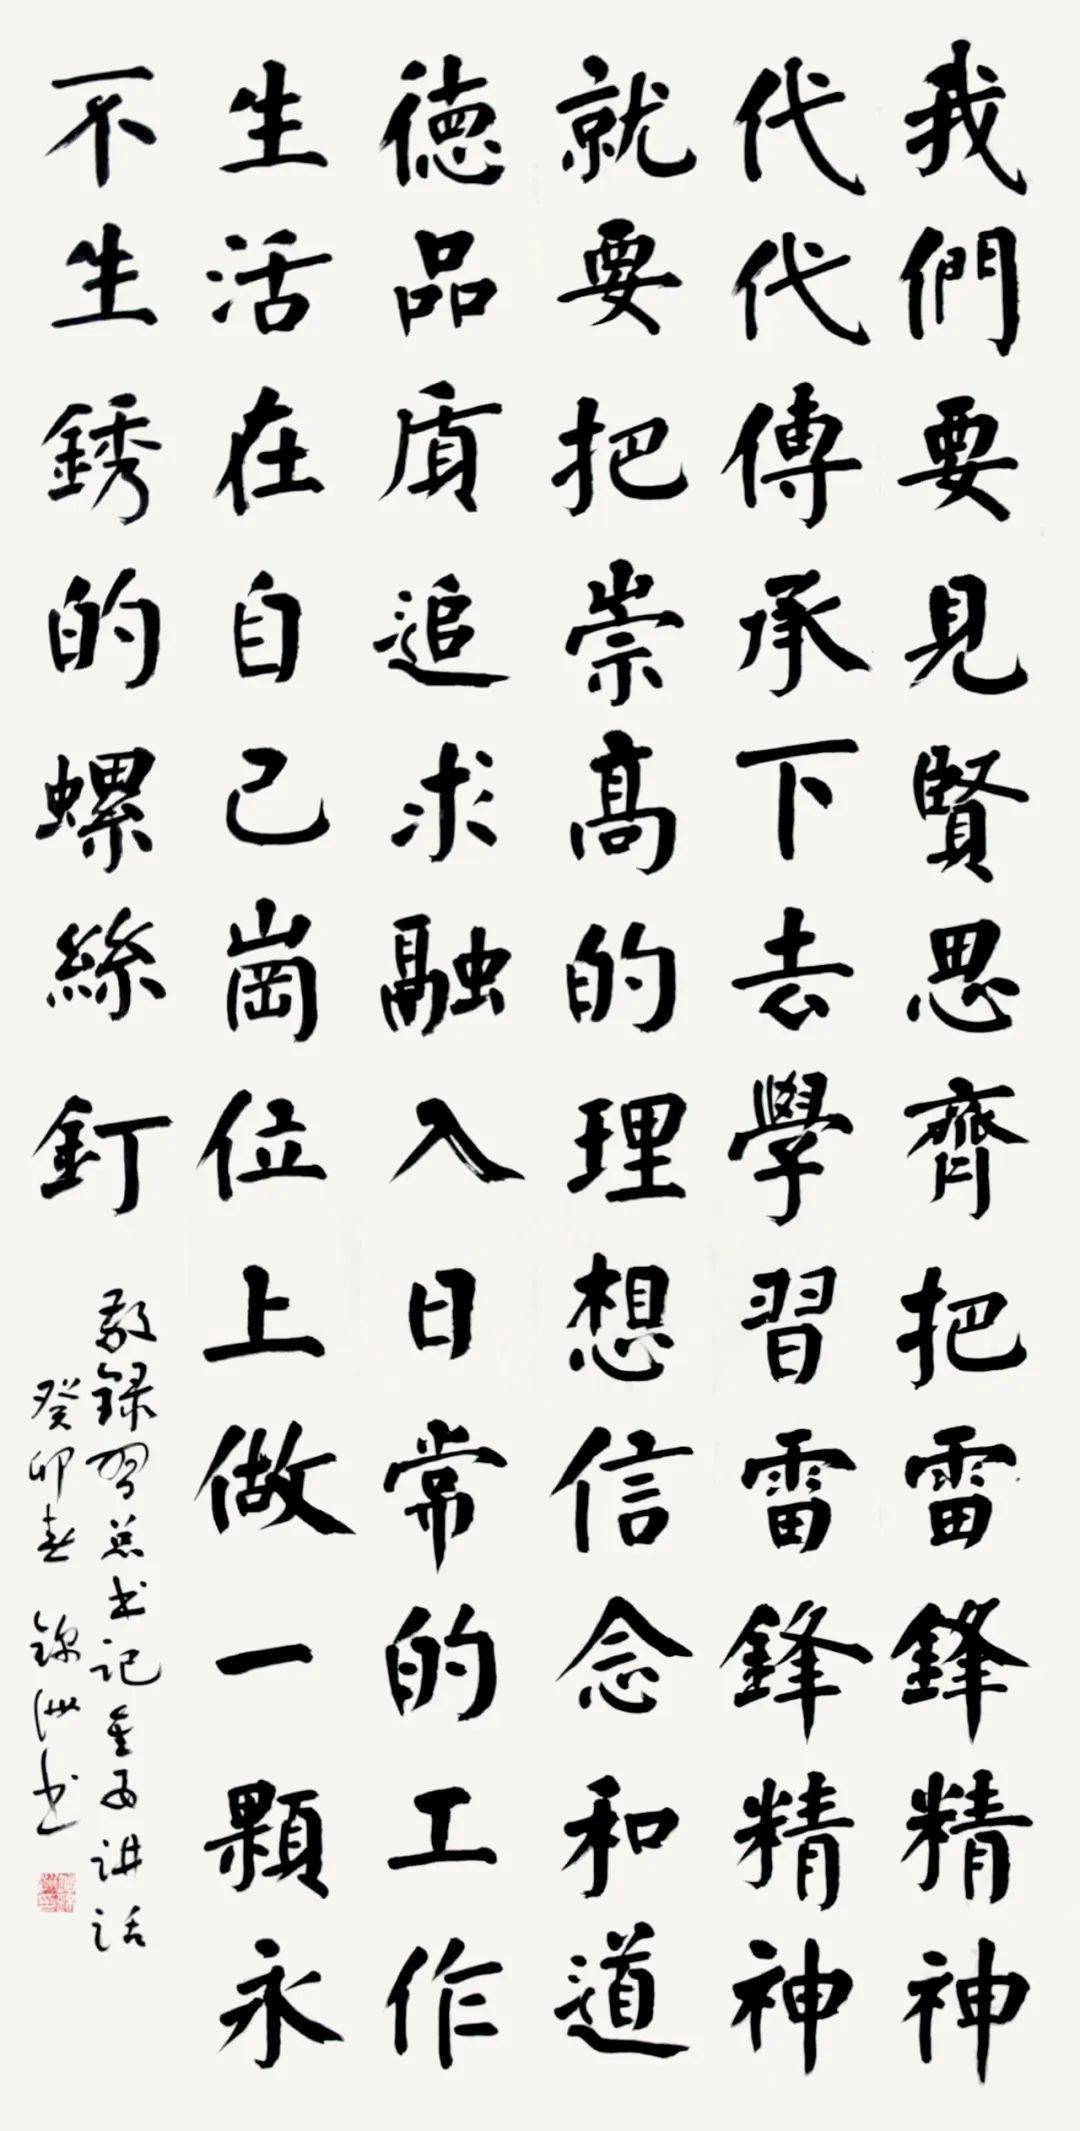 我們要見賢思齊把雷鋒精神
代代傳承下去學習雷鋒精神
就要把崇高的理想信念和道
德品質追求融入日常的工作
生活在自己崗位上做一顆永
不生銹的螺絲釘
敬錄習总书记重要讲话
癸卯春 錦洲书